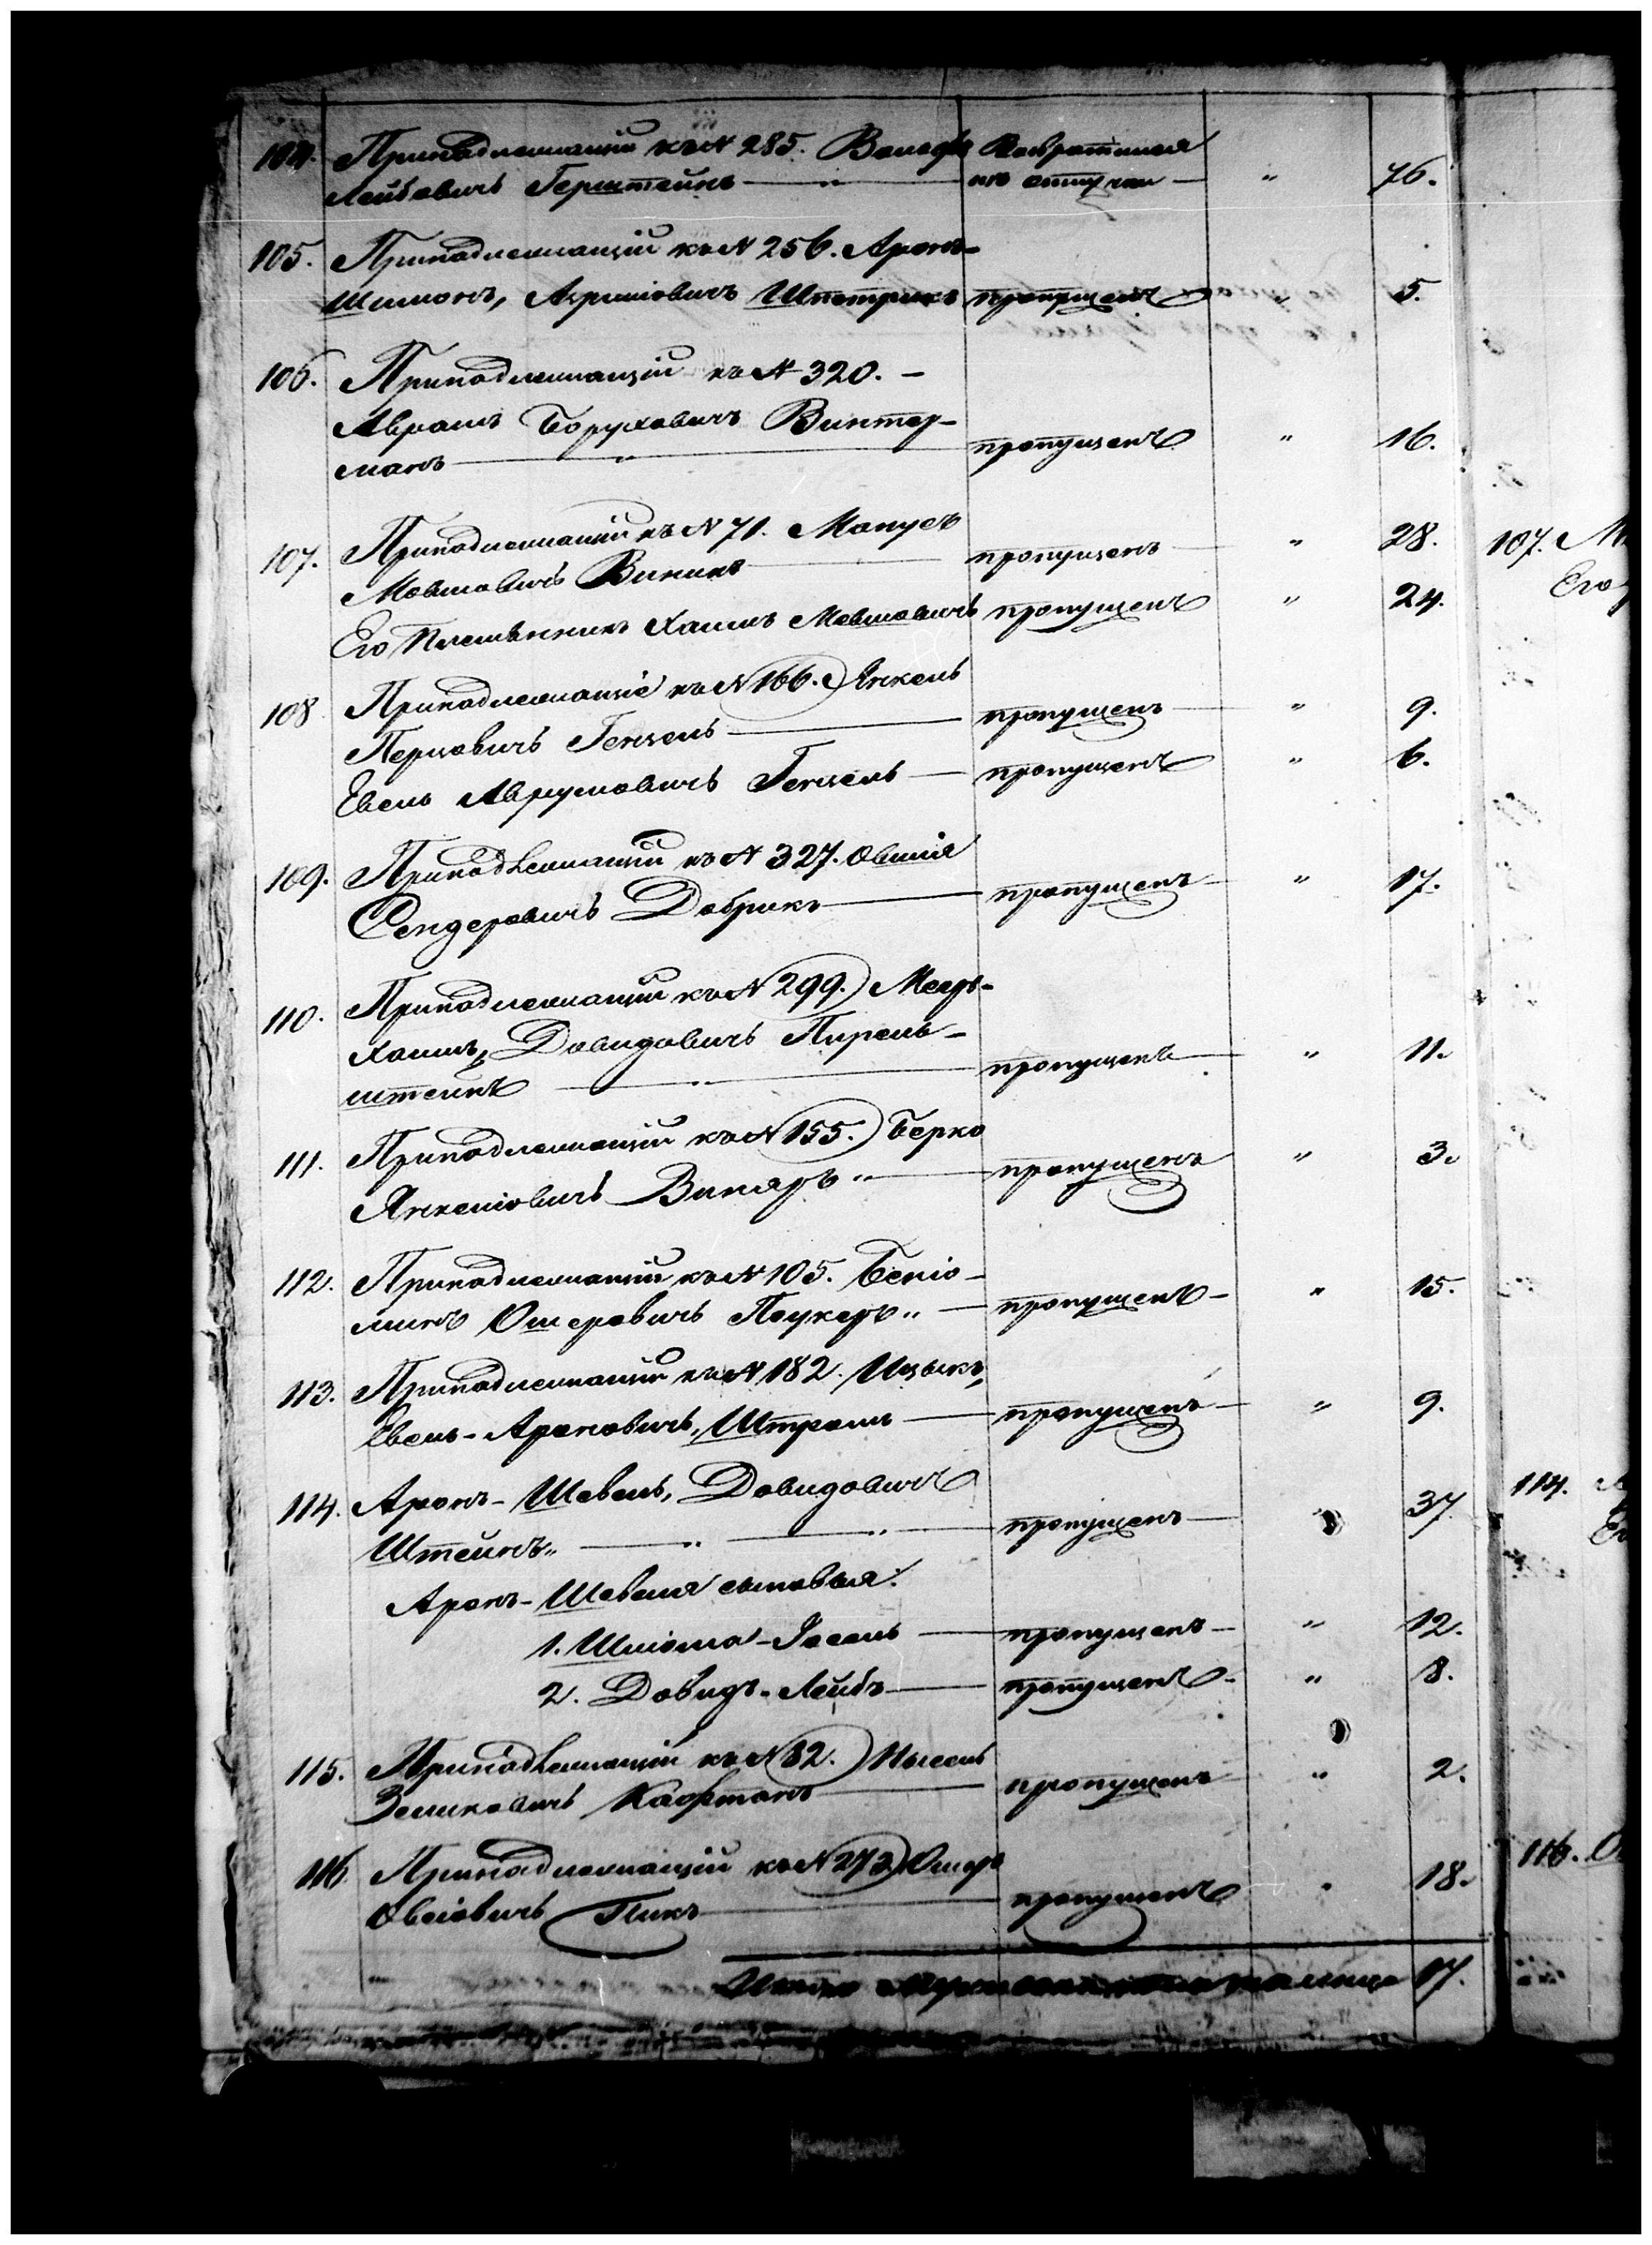 104. Принадлежащій къ № 285. Вольфъ Возвратился
Лейбовичъ Герштейнъ — " — изъ отлучки — " 76.
105. Принадлежащій къ № 256. Аронъ-
Шимонъ, Авріиловичъ пропущенъ " 5.
106. Принадлежащій къ № 320. —
Аврамъ Боруховичъ Винтер-
манъ — " — пропущенъ " 16.
107. Принадлежащій къ № 71. Манусъ
Мовшовичъ Винникъ — пропущенъ — " 28.
Его Племянникъ Хаимъ Мовшовичъ пропущенъ " 24.
108 Принадлежащіе къ № 166. Янкель
Перцовичъ Генцель — пропущенъ — " 9.
Евель Аврумовичъ Генцель — пропущенъ " 6.
109. Принадлежащій къ № 327. Овшія
Сендеровичъ Добрикъ — пропущенъ — " 17.
110. Принадлежащій къ № 299. Мееръ-
Хаимъ, Довидовичъ Пирель-
штейнъ — " — пропущенъ — " 11.
111. Принадлежащій къ № 155. Берко
Янкеліовичъ Винаръ " — пропущенъ " 3.
112. Принадлежащій къ № 105. Беніо-
минъ Ошеровичъ Паукеръ " — пропущенъ — " 15.
113. Принадлежащій къ № 182. Ицыкъ,
Евель-Ароновичъ, Штраль — пропущенъ — " 9.
114. Аронъ-Шевель, Довидовичъ
Штейнъ " — " — " — пропущенъ — " 37
Аронъ-Шевеля сыновья:
1. Шліома-Іосель — пропущенъ — " 12.
2. Довидъ-Лейбъ — пропущенъ — " 8.
115. Принадлежащій къ № 82. Нысель
Зеликовичъ Кафтанъ — пропущенъ " 2.
116 Принадлежащій къ № 273. Ошеръ
Овсіовичъ Пикъ — пропущенъ " 18.
Итого 17.
107.
Его
114.
116.